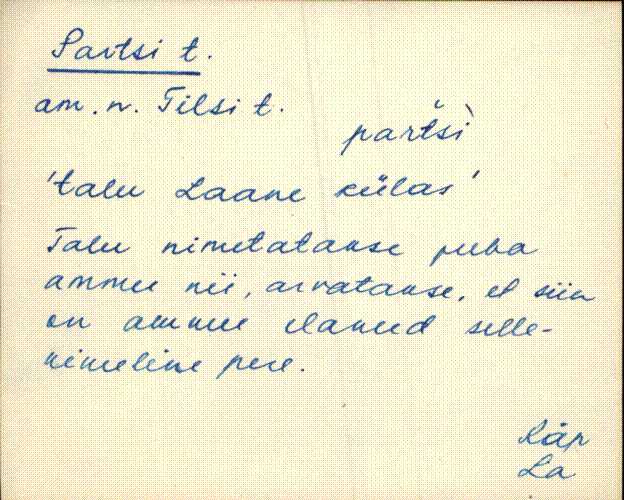 Partsi t.
am. n. Tilsi t.
partsi
'talu Laane külas'
Talu nimetatakse juba
ammu nii, arvatakse, et siin
on ammu elanud selle-
nimeline pere.
Räp
La